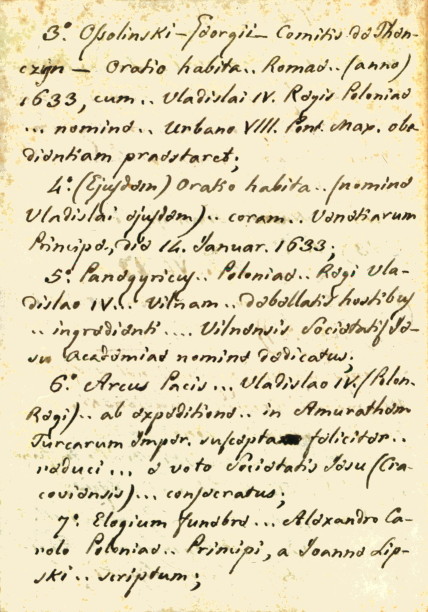 3.° Oſsolinski — Georgii — Comitis de Then-
czyn — Oratio habita .. Romae .. (anno)
1633, cum .. Vladislai IV. Regis Poloniae
... nomine .. Urbano VIII. Pont. Max. obe
dientiam praestaret;
4.° (Ejusdem) Oratio habita .. (nomine
Vladislai ejusdem) .. coram .. Venetiarum
Principe, die 14. Januar. 1633;
5.° Panegyricus .. Poloniae .. Regi Vla-
dislao IV ... Vilnam .. debellatis hostibus
.. ingredienti .... Vilnensis Societatis Je-
su Academiae nomine dedicatus;
6.° Arcus Pacis ... Vladislao IV. (Polon.
Regi) .. ab expeditione .. in Amurathem
Turcarum Imper. suscepta feliciter ..
reduci ... e voto Societatis Jesu (Cra-
coviensis) ... consecratus;
7.° Elogium funebre ... Alexandro Ca-
rolo Poloniae .. Principi, a Joanne Lip-
ski .. scriptum;